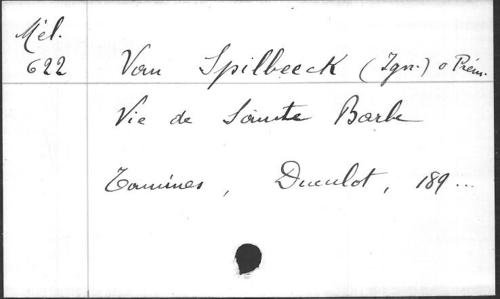 Mél.
622
Van Spilbeeck (Ign.) o Prém.
Vie de Sainte Barbe
Tamines, Duculot, 189...